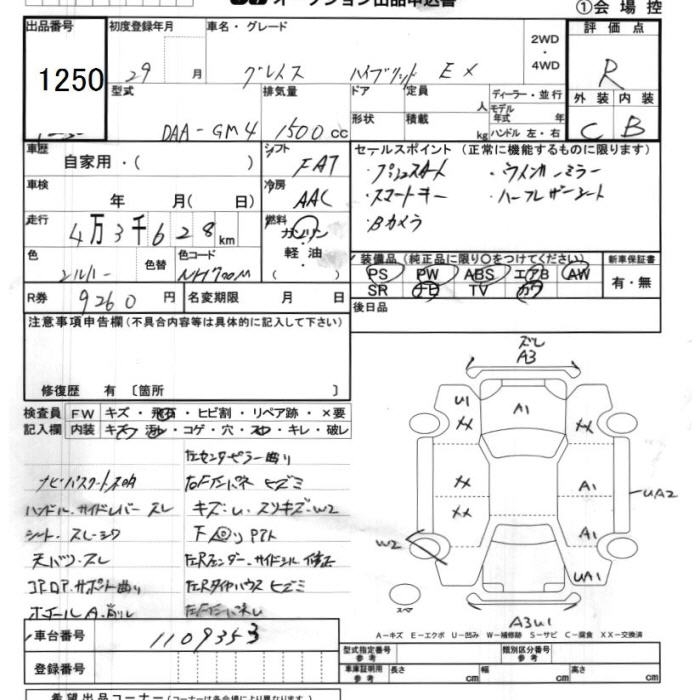 オークション出品申込書
①会場控
出品番号 初度登録年月 車名・グレード 2WD・4WD 評価点
1250 29 月 グレイス ハイブリッド EX R
型式 排気量 ドア 定員 人 ディーラー・並行 外装 内装
DAA-GM4 1500cc 形状 積載 kg モデル年式 年 ハンドル 左・右 C B
車歴 自家用・( ) シフト FAT セールスポイント (正常に機能するものに限ります)
・プッシュスタート ・ウインカーミラー
車検 年 月( 日) 冷房 AAC ・スマートキー ・ハーフレザーシート
走行 4万3千628km 燃料 ガソリン・軽油( ) ・Bカメラ
色 シルバー 色替 色コード NH700M 装備品 (純正品に限り○をつけてください) 新車保証書
PS PW ABS エアB AW 有・無
SR ナビ TV カワ
R券 9260円 名変期限 月 日 後日品
注意事項申告欄 (不具合内容等は具体的に記入して下さい)
修復歴 有 〔箇所 〕
検査員記入欄 FW キズ・飛石・ヒビ割・リペア跡・×要
内装 キズ・汚れ・コゲ・穴・スレ・キレ・破レ
左センターピラー曲り
ハンドル.サイドレバー スレ キズ・U.スリキズ・W2
シート.スレ・シワ
天バリ.スレ 左Rフェンダー.サイドシル 修正
コアロア.サポート曲り 左Rタイヤハウス ヒズミ
ホイールA.削レ
ズレ
A3
U1 A1
XX XX
XX A1
XX UA2
A1
W2
UA1
スマ
A3U1
A-キズ E-エクボ U-凹み W-補修跡 S-サビ C-腐食 XX-交換済
車台番号 1109353
型式指定番号 参考 類別区分番号 参考
登録番号 車庫証明用 参考 長さ cm 幅 cm 高さ cm
希望出品コーナー